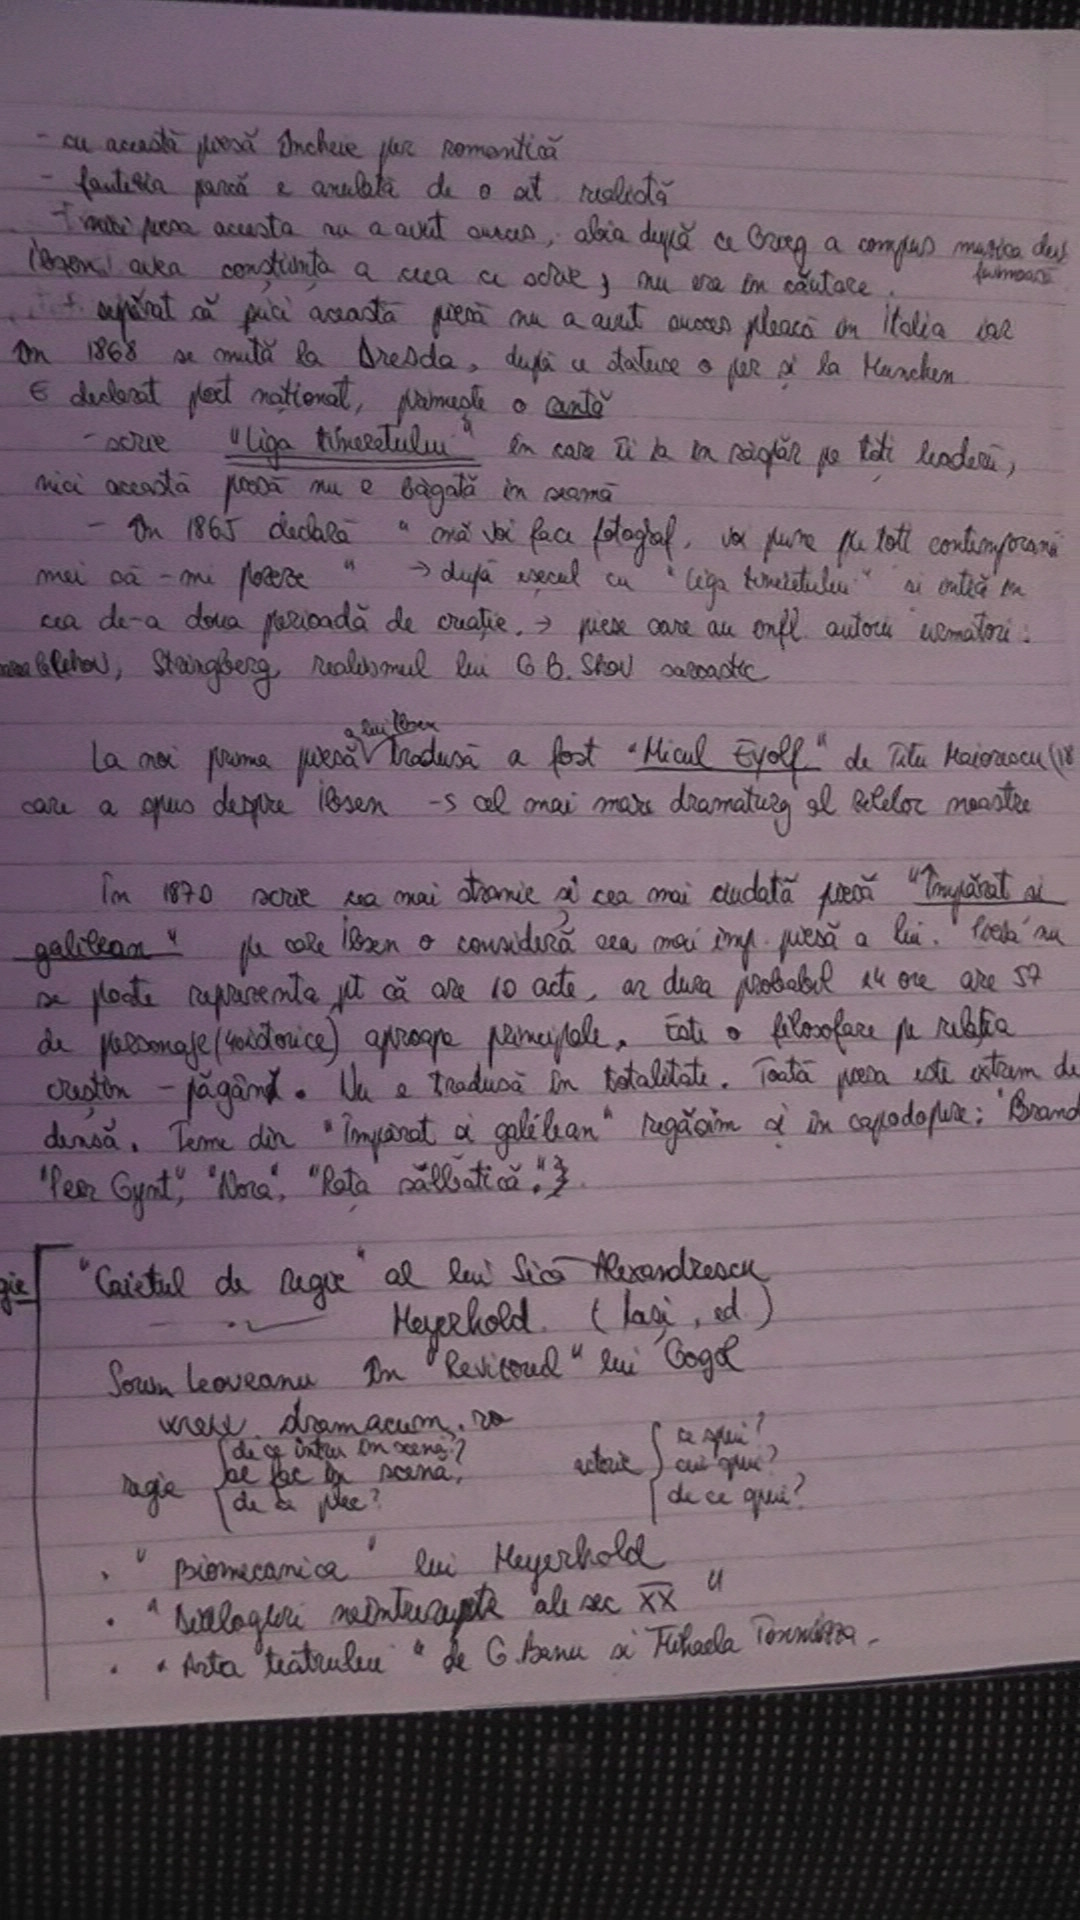 - cu această piesă încheie per romantică
- fantezia parcă e anulată de o at. realistă
nici piesa aceasta nu a avut succes, abia după ce Grieg a compus muzica
frumoasă
Ibsen avea conștiința a ceea ce scrie, nu era în căutare.
supărat că nici această piesă nu a avut succes pleacă în Italia iar
În 1868 se mută la Dresda, după ce stătuse o per și la Munchen
E declarat poet național, primește o
- scrie "Liga tineretului" în care îi ia în răspăr pe toți leaderii,
nici această piesă nu e băgată în seamă
- În 1865 declară "mă voi face fotograf, voi pune pe toti contemporanii
mei să-mi pozeze" → după eșecul cu "Liga tineretului" si intră în
cea de-a doua perioadă de creație. → piese care au infl. autorii următori:
Cehov, Stringberg, realismul lui G B. Shov sarcastic
a lui Ibsen
La noi prima piesă tradusă a fost "Micul Eyolf" de Titu Maiorescu (18
care a spus despre Ibsen -s cel mai mare dramaturg al zilelor noastre
În 1870 scrie cea mai stranie si cea mai ciudată piesă "Împărat si
galilean" pe care Ibsen o consideră cea mai imp. piesă a lui. Piesa nu
se poate reprezenta pt că are 10 acte, ar dura probabil 14 ore are 57
de personaje (40 istorice) aproape principale. Este o filosofare pe relația
creștin - păgân. Nu e tradusă în totalitate. Toată piesa este extrem de
densă. Teme din "Împărat și galilean" regăsim și în capodopere: "Brand
"Peer Gynt", "Nora", "Rața sălbatică".
"Caietul de regie" al lui Sică Alexandrescu
Meyerhold. (Iași, ed.)
Sorin Leoveanu în "Revizorul" lui Gogol
www. dramacum. ro
regie { de ce intru în scenă?
ce fac în scenă,
de ce plec?
actorie { ce spui?
cui spui?
de ce spui?
. "Biomecanica" lui Meyerhold
. "Dialoguri neîntrerupte ale sec XX"
. "Arta teatrului" de G. Banu si Mihaela Tonitza.